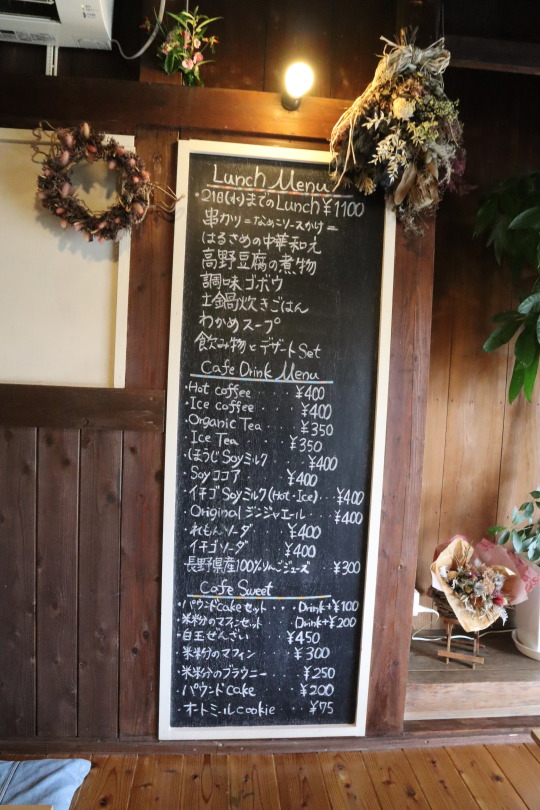 Lunch Menu
・21日(水)までのLunch ¥1100
串カツ=なめこソースかけ=
はるさめの中華和え
高野豆腐の煮物
調味ゴボウ
土鍋炊きごはん
わかめスープ
飲み物とデザートSet
Cafe Drink Menu
・Hot coffee ¥400
・Ice coffee ・・・ ¥400
・Organic Tea ¥350
・Ice Tea ・・・ ¥350
・ほうじSoyミルク ・・・ ¥400
・Soyココア ・・・ ¥400
・イチゴSoyミルク(Hot・Ice)・・・¥400
・Original ジンジャエール・・・¥400
・れもんソーダ ・・・ ¥400
・イチゴソーダ ・・・ ¥400
・長野県産100%りんごジューズ・・¥300
Cafe Sweet
・パウンドcakeセット・・・Drink+¥100
・米粉のマフィンセット Drink+¥200
・白玉ぜんざい ¥450
・米粉のマフィン ・・・ ¥300
・米粉のブラウニー ・・・ ¥250
・パウンドcake ・・・ ¥200
・オートミールcookie ・・ ¥75